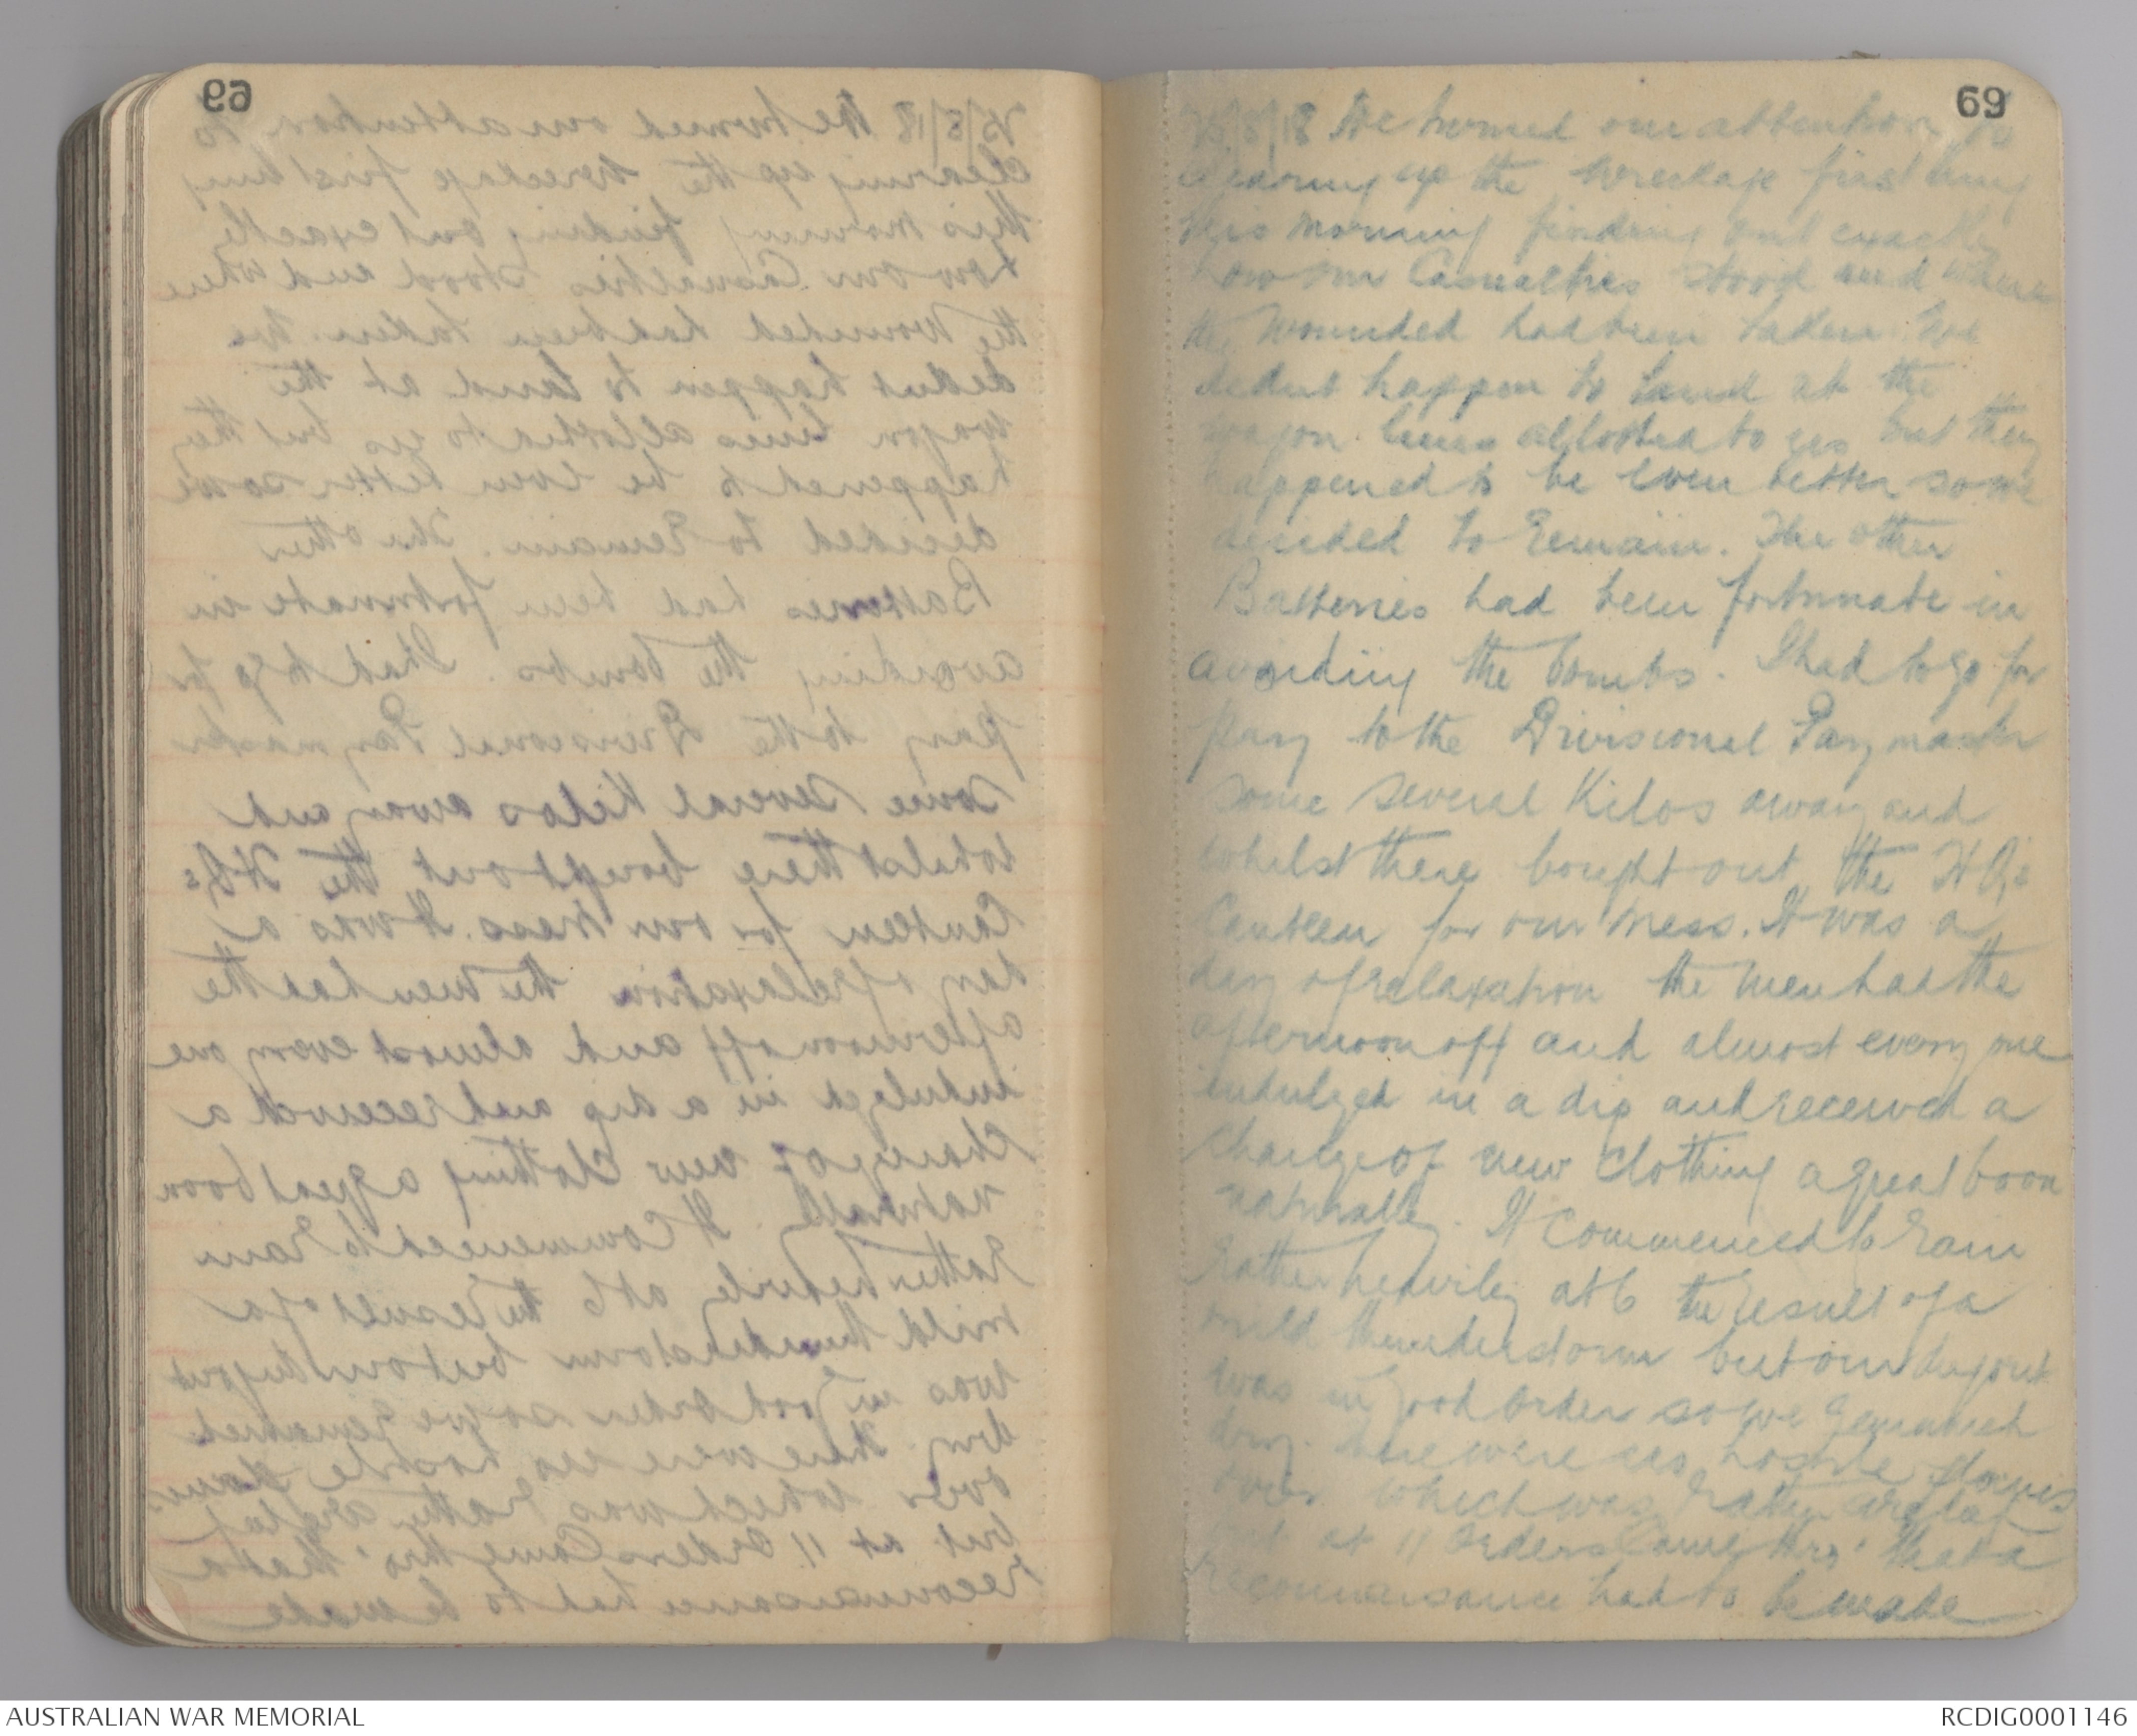 69
69
25/8/18 We turned our attention to
clearing up the wreckage first thing
this morning finding out exactly
how our Casualties stood and where
the wounded had been taken. We
didnt happen to land at the
wagon lines allotted to us but they
happened to be even better so we
decided to remain. The other
Batteries had been fortunate in
avoiding the bombs. I had to go for
pay to the Divisional Paymaster
some several Kilos away and
whilst there bought out the HQs
Canteen for our mess. It was a
day of relaxation the men had the
afternoon off and almost every one
indulged in a dip and received a
change of new clothing a great boon
naturally. It commenced to rain
rather heavily at 6 the result of a
mild thunderstorm but our dugout
was in good order so we remained
dry. There were no hostile planes
over which was rather
but at 11 Orders Came thro' that a
reconnaisance had to be made
AUSTRALIAN WAR MEMORIAL
RCDIG0001146